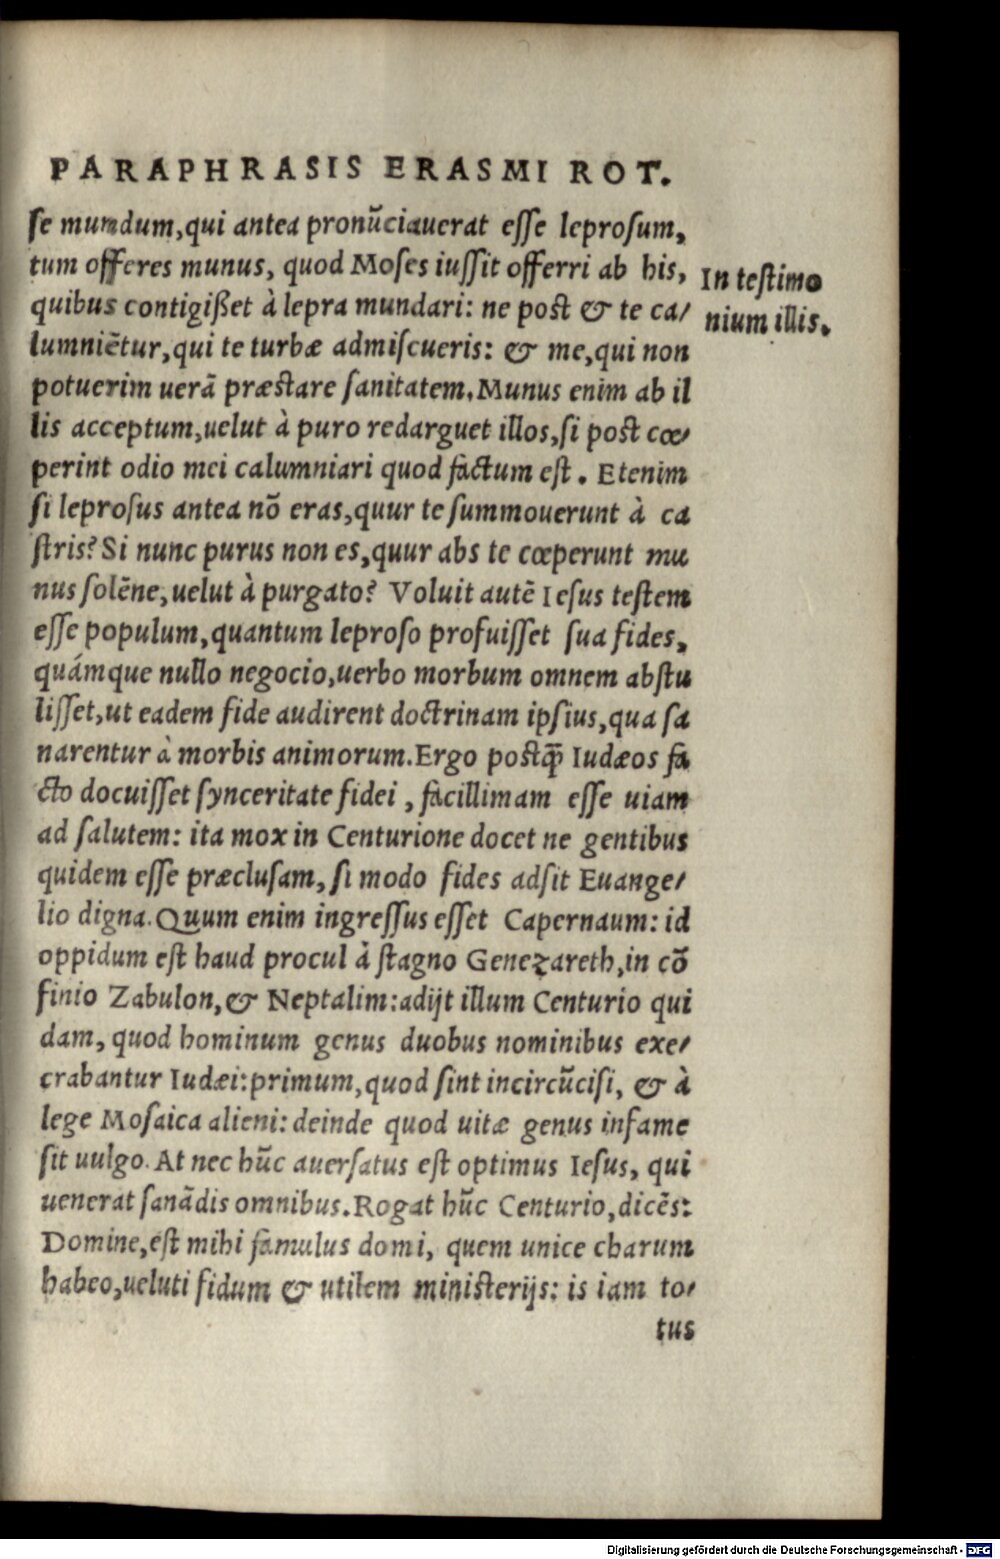 PARAPHRASIS ERASMI ROT.
se mundum,qui antea pronũciauerat esse leprosum,
tum offeres munus, quod Moses iussit offerri ab his,
In testimo
quibus contigißet à lepra mundari: ne post & te ca/
nium illis.
lumniẽtur,qui te turbæ admiscueris: & me,qui non
potuerim uerã præstare sanitatem.Munus enim ab il
lis acceptum,uelut à puro redarguet illos,si post cœ/
perint odio mei calumniari quod factum est. Etenim
si leprosus antea nõ eras,quur te summouerunt à ca
stris?Si nunc purus non es,quur abs te cœperunt mu
nus solẽne,uelut à purgato? Voluit autẽ Iesus testem
esse populum,quantum leproso profuisset sua fides,
quámque nullo negocio,uerbo morbum omnem abstu
lisset,ut eadem fide audirent doctrinam ipsius,qua sa
narentur à morbis animorum.Ergo postꝙ̃ Iudæos fa
cto docuisset synceritate fidei, facillimam esse uiam
ad salutem: ita mox in Centurione docet ne gentibus
quidem esse præclusam,si modo fides adsit Euange/
lio digna.Quum enim ingressus esset Capernaum: id
oppidum est haud procul à stagno Genezareth,in cõ
finio Zabulon,& Neptalim:adijt illum Centurio qui
dam, quod hominum genus duobus nominibus exe/
crabantur Iudæi:primum,quod sint incircũcisi, & à
lege Mosaica alieni: deinde quod uitæ genus infame
sit uulgo.At nec hũc auersatus est optimus Iesus, qui
uenerat sanãdis omnibus.Rogat hũc Centurio,dicẽs:
Domine,est mihi famulus domi, quem unice charum
habeo,ueluti fidum & utilem ministerijs: is iam to/
tus
Digitalisierung gefördert durch die Deutsche Forschungsgemeinschaft - DFG